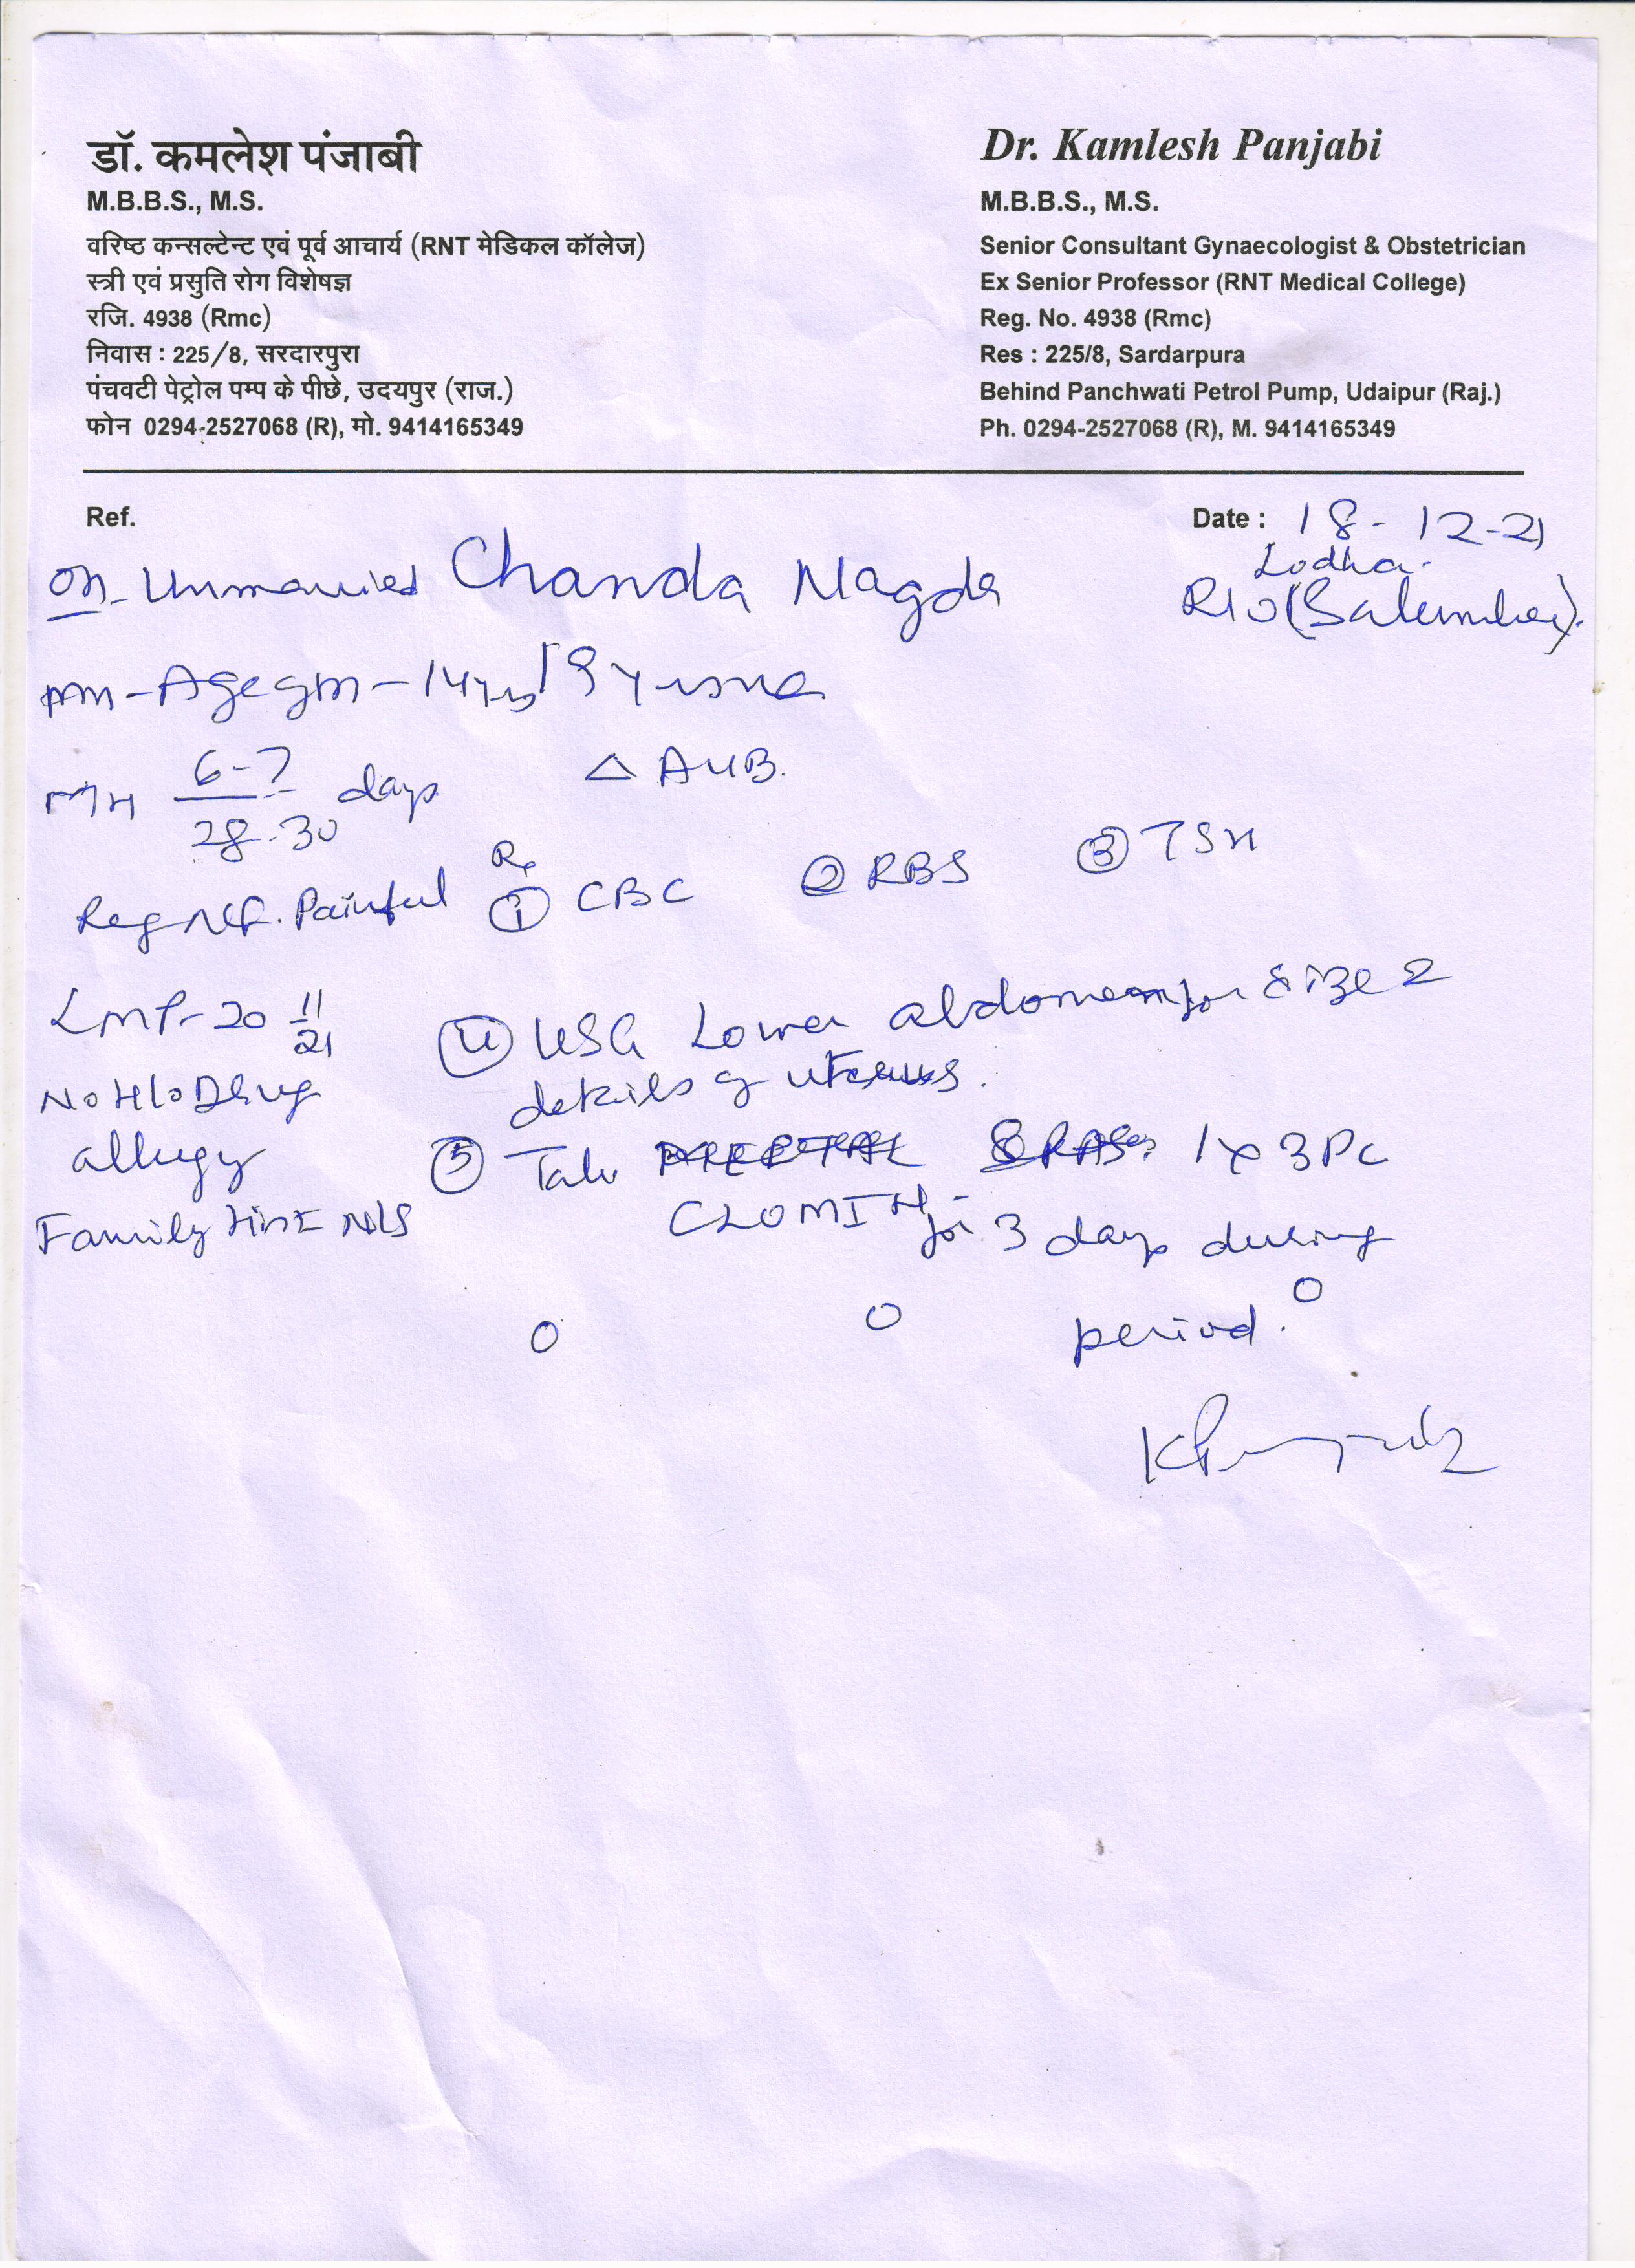 डॉ. कमलेश पंजाबी
M.B.B.S., M.S.
वरिष्ठ कन्सल्टेन्ट एवं पूर्व आचार्य (RNT मेडिकल कॉलेज)
स्त्री एवं प्रसुति रोग विशेषज्ञ
रजि. 4938 (Rmc)
निवास : 225/8, सरदारपुरा
पंचवटी पेट्रोल पम्प के पीछे, उदयपुर (राज.)
फोन 0294-2527068 (R), मो. 9414165349
Dr. Kamlesh Panjabi
M.B.B.S., M.S.
Senior Consultant Gynaecologist & Obstetrician
Ex Senior Professor (RNT Medical College)
Reg. No. 4938 (Rmc)
Res : 225/8, Sardarpura
Behind Panchwati Petrol Pump, Udaipur (Raj.)
Ph. 0294-2527068 (R), M. 9414165349
Ref.
Date : 18-12-21
Lodha.
Unmarried Chanda Nagda
R/O (Salumber).
Age 14 yrs
MH 6-7/28-30 days
△ AUB.
Reg Painful
Rx
① CBC ② RBS ③ TSH
LMP- 20 11/21
④ USG Lower abdomen for size &
details of uterus.
No H/o Drug
allergy
⑤ Tab 1x3 PC
for 3 days during
period.
Family Hist